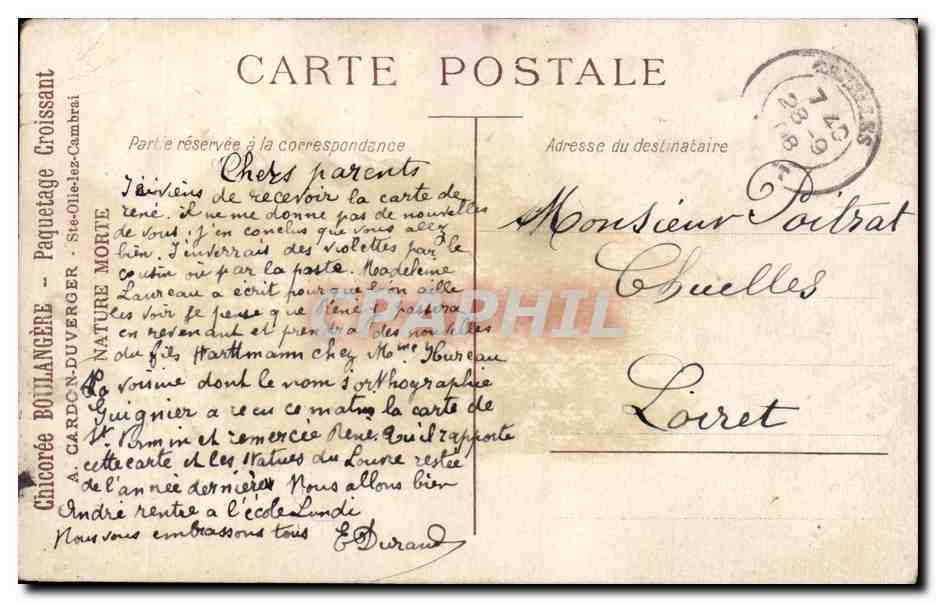 CARTE POSTALE
Chicorée BOULANGÈRE - Paquetage Croissant
A. CARDON-DUVERGER - Ste-Olle-lez-Cambrai
NATURE MORTE
Partie réservée à la correspondance
Chers parents
viens de recevoir la carte de
rené. il ne me donne pas de nouvelles
de vous. j'en conclus que vous allez
bien. J'inverrais des violettes par le
cousin où par la poste. Madeleine
Laureau a écrit pourque l'on aille
les voir je pense que réné passera
en revenant et prendra des nouvelles
du fils Harttmann chez Mme Hureau
La voisine dont le nom s'orthographie
Guignier a recu ce matin la carte de
St Firmin et remercée René. Qu'il rapporte
cette carte et les Statues du Louvre restée
de l'année dernière Nous allons bien
André rentre a l'école Lundi
Nous vous embrassons tous E Durand
Adresse du destinataire
Monsieur Poitrat
Chuelles
Loiret
7 40
28 -9
08
CPAPHIL